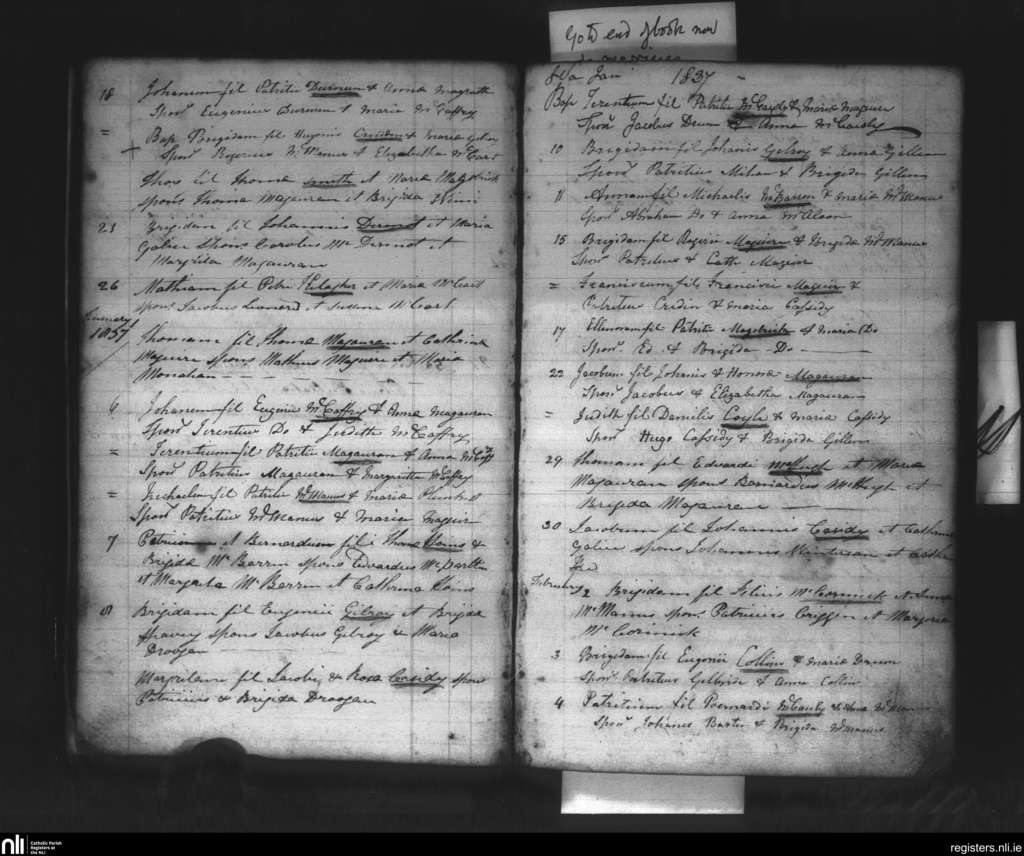 18 Johanem fil Patritii Durneen & Anna Magrath
Spon Eugenius Durneen & Maria McCaffry
= Bap Brigidam fil Hugonis & Maria Gilroy
Spon Rogerius McManus & Elizabetha McCart
Thos fil Thoma Smith et Maria
spons Thoma Magauran et Brigida
21 Brigidam fil Johannis Dermot et Maria
Galier Spons Carolus Mc Dermot et
Margrita Magauran
26 Mathiam fil Petri et Maria McCart
spons Jacobus Leonard et McCart
January 1837
Thomam fil Thoma Magauran et Cathrina
Maguire spons Matheus Maguire et Maria
Monahan
6 Johanem fil Eugenii McCaffry & Anna Magauran
Spon Terentius Do & Judith McCaffry
= Terentium fil Patritii Magauran & Anna
Spon Patritius Magauran & Margaritta McCaffry
= Michaelem fil Patritii McManus & Maria Plunket
Spon Patritius McManus & Maria Maguir
7 et Bernardum fil Thoma &
Brigida McBarrin spons Edvardus
et Margrita McBerrin et Cathrina
8 Brigidam fil Eugenii Gilroy et Brigda
spons Jacobus Gilroy & Maria
Droogan
Margritam fil Jacobi & Rosa Casidy spon
Patricius & Brigida Droogan
Go to end of book now
8th Jan 1837
Bap Terentium fil Patritii & Maria Maguir
Spon Jacobus Drum & Anna
10 Brigidam fil Johanis Gilroy & Anna Gillen
Spon Patritius & Brigida Gillen
11 Annam fil Michaelis McBarron & Maria McManus
Spon Abraham Do & Anna McAloon
15 Brigidam fil Rogerii Maguire & Brigida McManus
Spon Patritius & Cath Maguir
= Franciscum fil Francisci Maguir &
Patritius & Maria Cassidy
17 Ellenoram fil Patritii & Maria Do
Spon Ed & Brigida Do
22 Jacobum fil Johanis & Honora Magauran
Spon Jacobus & Elizabetha Magauran
= Judith fil Danielis Coyle & Maria Cassidy
Spon Hugo Cassidy & Brigida Gillen
29 Thomam fil Edvardi McHugh et Maria
Magauran spons Bernardus McHugh et
Brigida Magauran
30 Jacobum fil Johannis Casidy et Cathrina
Galier spons Johannes et
February 2 Brigidam fil McCormick et
McManus spon Patricius Griffin et Margrita
McCormick
3 Brigidam fil Eugenii Collins & Maria Drum
Spon Patritius Gilbride & Anna Collin
4 Patritium fil Bernardi & Anna McManus
Spon Johanes & Brigida McManus
nli
Catholic Parish
Registers at
the NLI
registers.nli.ie